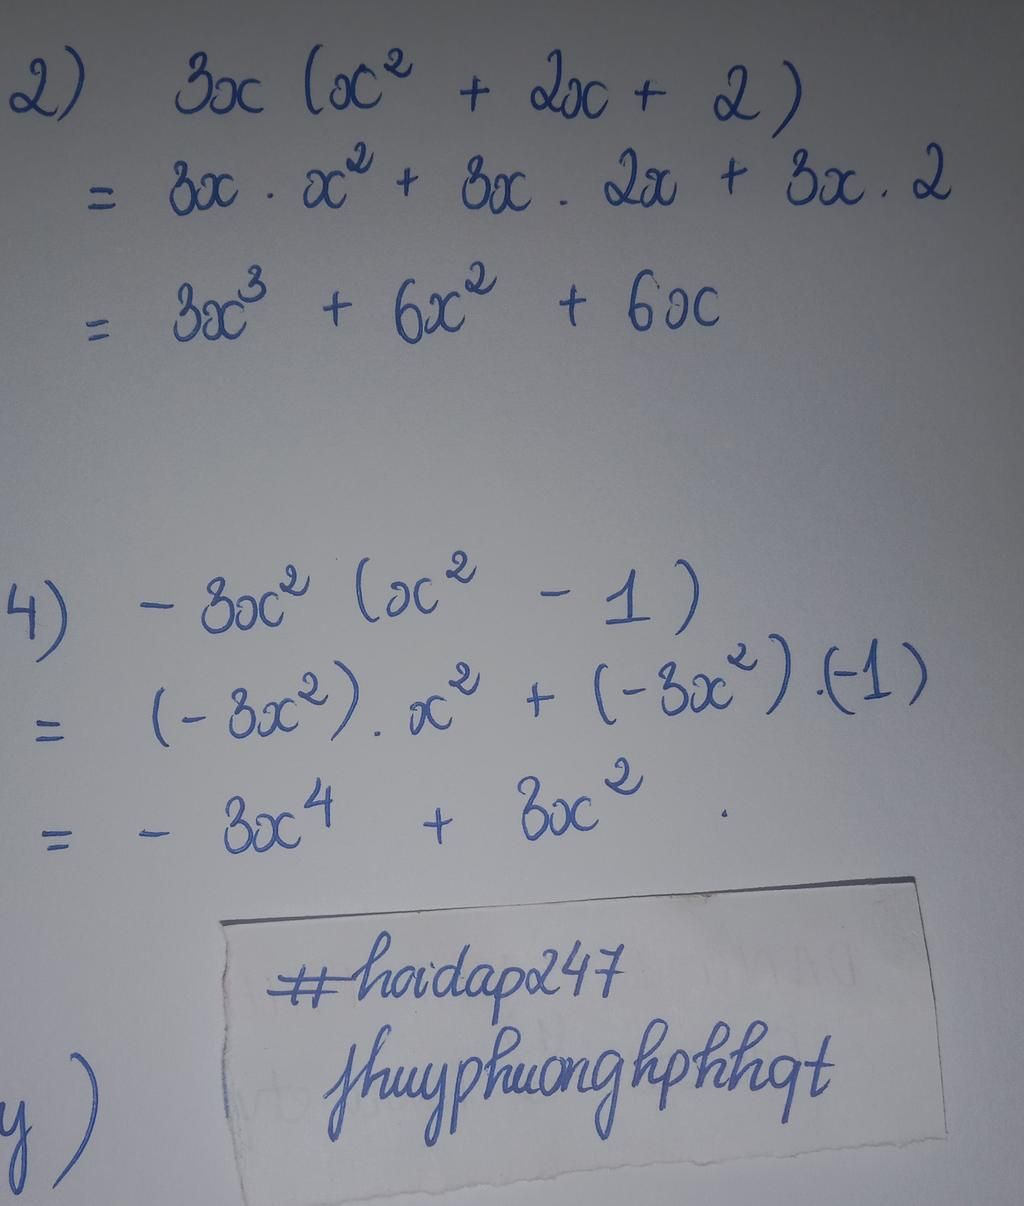 2) 3x (x² + 2x + 2)
= 3x . x² + 3x . 2x + 3x . 2
= 3x³ + 6x² + 6x
4) - 3x² (x² - 1)
= (- 3x²) . x² + (- 3x²) . (-1)
= - 3x⁴ + 3x² .
#hoidap247
thuyphuonghphhqt
y)